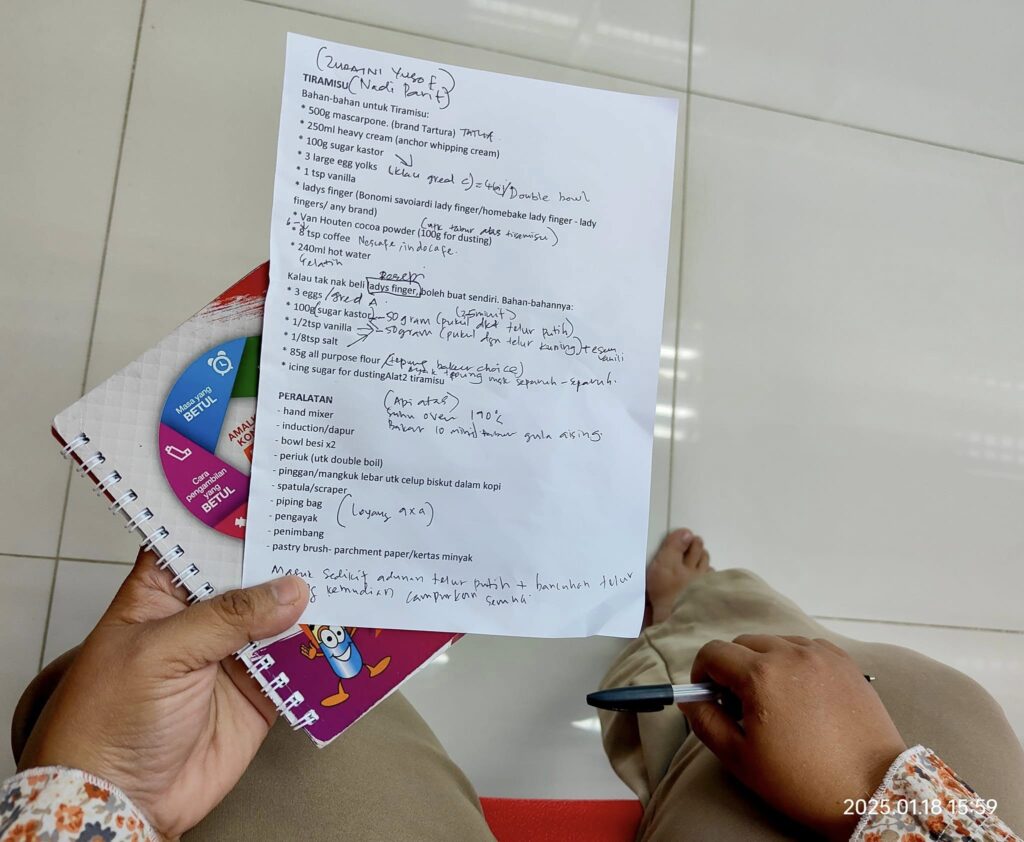 (ZURAINI YUSOF)
TIRAMISU (Nadi Parit)
Bahan-bahan untuk Tiramisu:
* 500g mascarpone. (brand Tartura) TATURA
* 250ml heavy cream (anchor whipping cream)
* 100g sugar kastor
* 3 large egg yolks (klau gred C) = 4 biji / Double bowl
* 1 tsp vanilla
* ladys finger (Bonomi savoiardi lady finger/homebake lady finger - lady
fingers/ any brand)
* Van Houten cocoa powder (100g for dusting) (utk tabur atas tiramisu)
* 8 tsp coffee Nescafe indocafe.
* 240ml hot water
Gelatin
Resepi
Kalau tak nak beli ladys finger, boleh buat sendiri. Bahan-bahannya:
* 3 eggs / gred A
* 100g (sugar kastor) - 50 gram (pukul dkt telur putih) (25 minit)
* 1/2tsp vanilla - 50 gram (pukul dgn telur kuning) + esen vanili
* 1/8tsp salt
* 85g all purpose flour (tepung bakers choice)
* icing sugar for dustingAlat2 tiramisu tepung msk separuh - separuh.
PERALATAN (Api atas)
- hand mixer Suhu oven 190°c
- induction/dapur Bakar 10 minit/tabur gula aising.
- bowl besi x2
- periuk (utk double boil)
- pinggan/mangkuk lebar utk celup biskut dalam kopi
- spatula/scraper
- piping bag (Loyang 9x9)
- pengayak
- penimbang
- pastry brush- parchment paper/kertas minyak
Masuk sedikit adunan telur putih + bancuhan telur
kemudian campurkan semua.
Masa yang
BETUL
Cara
pengambilan
yang
BETUL
AMALI
KON
2025.01.18 15:59